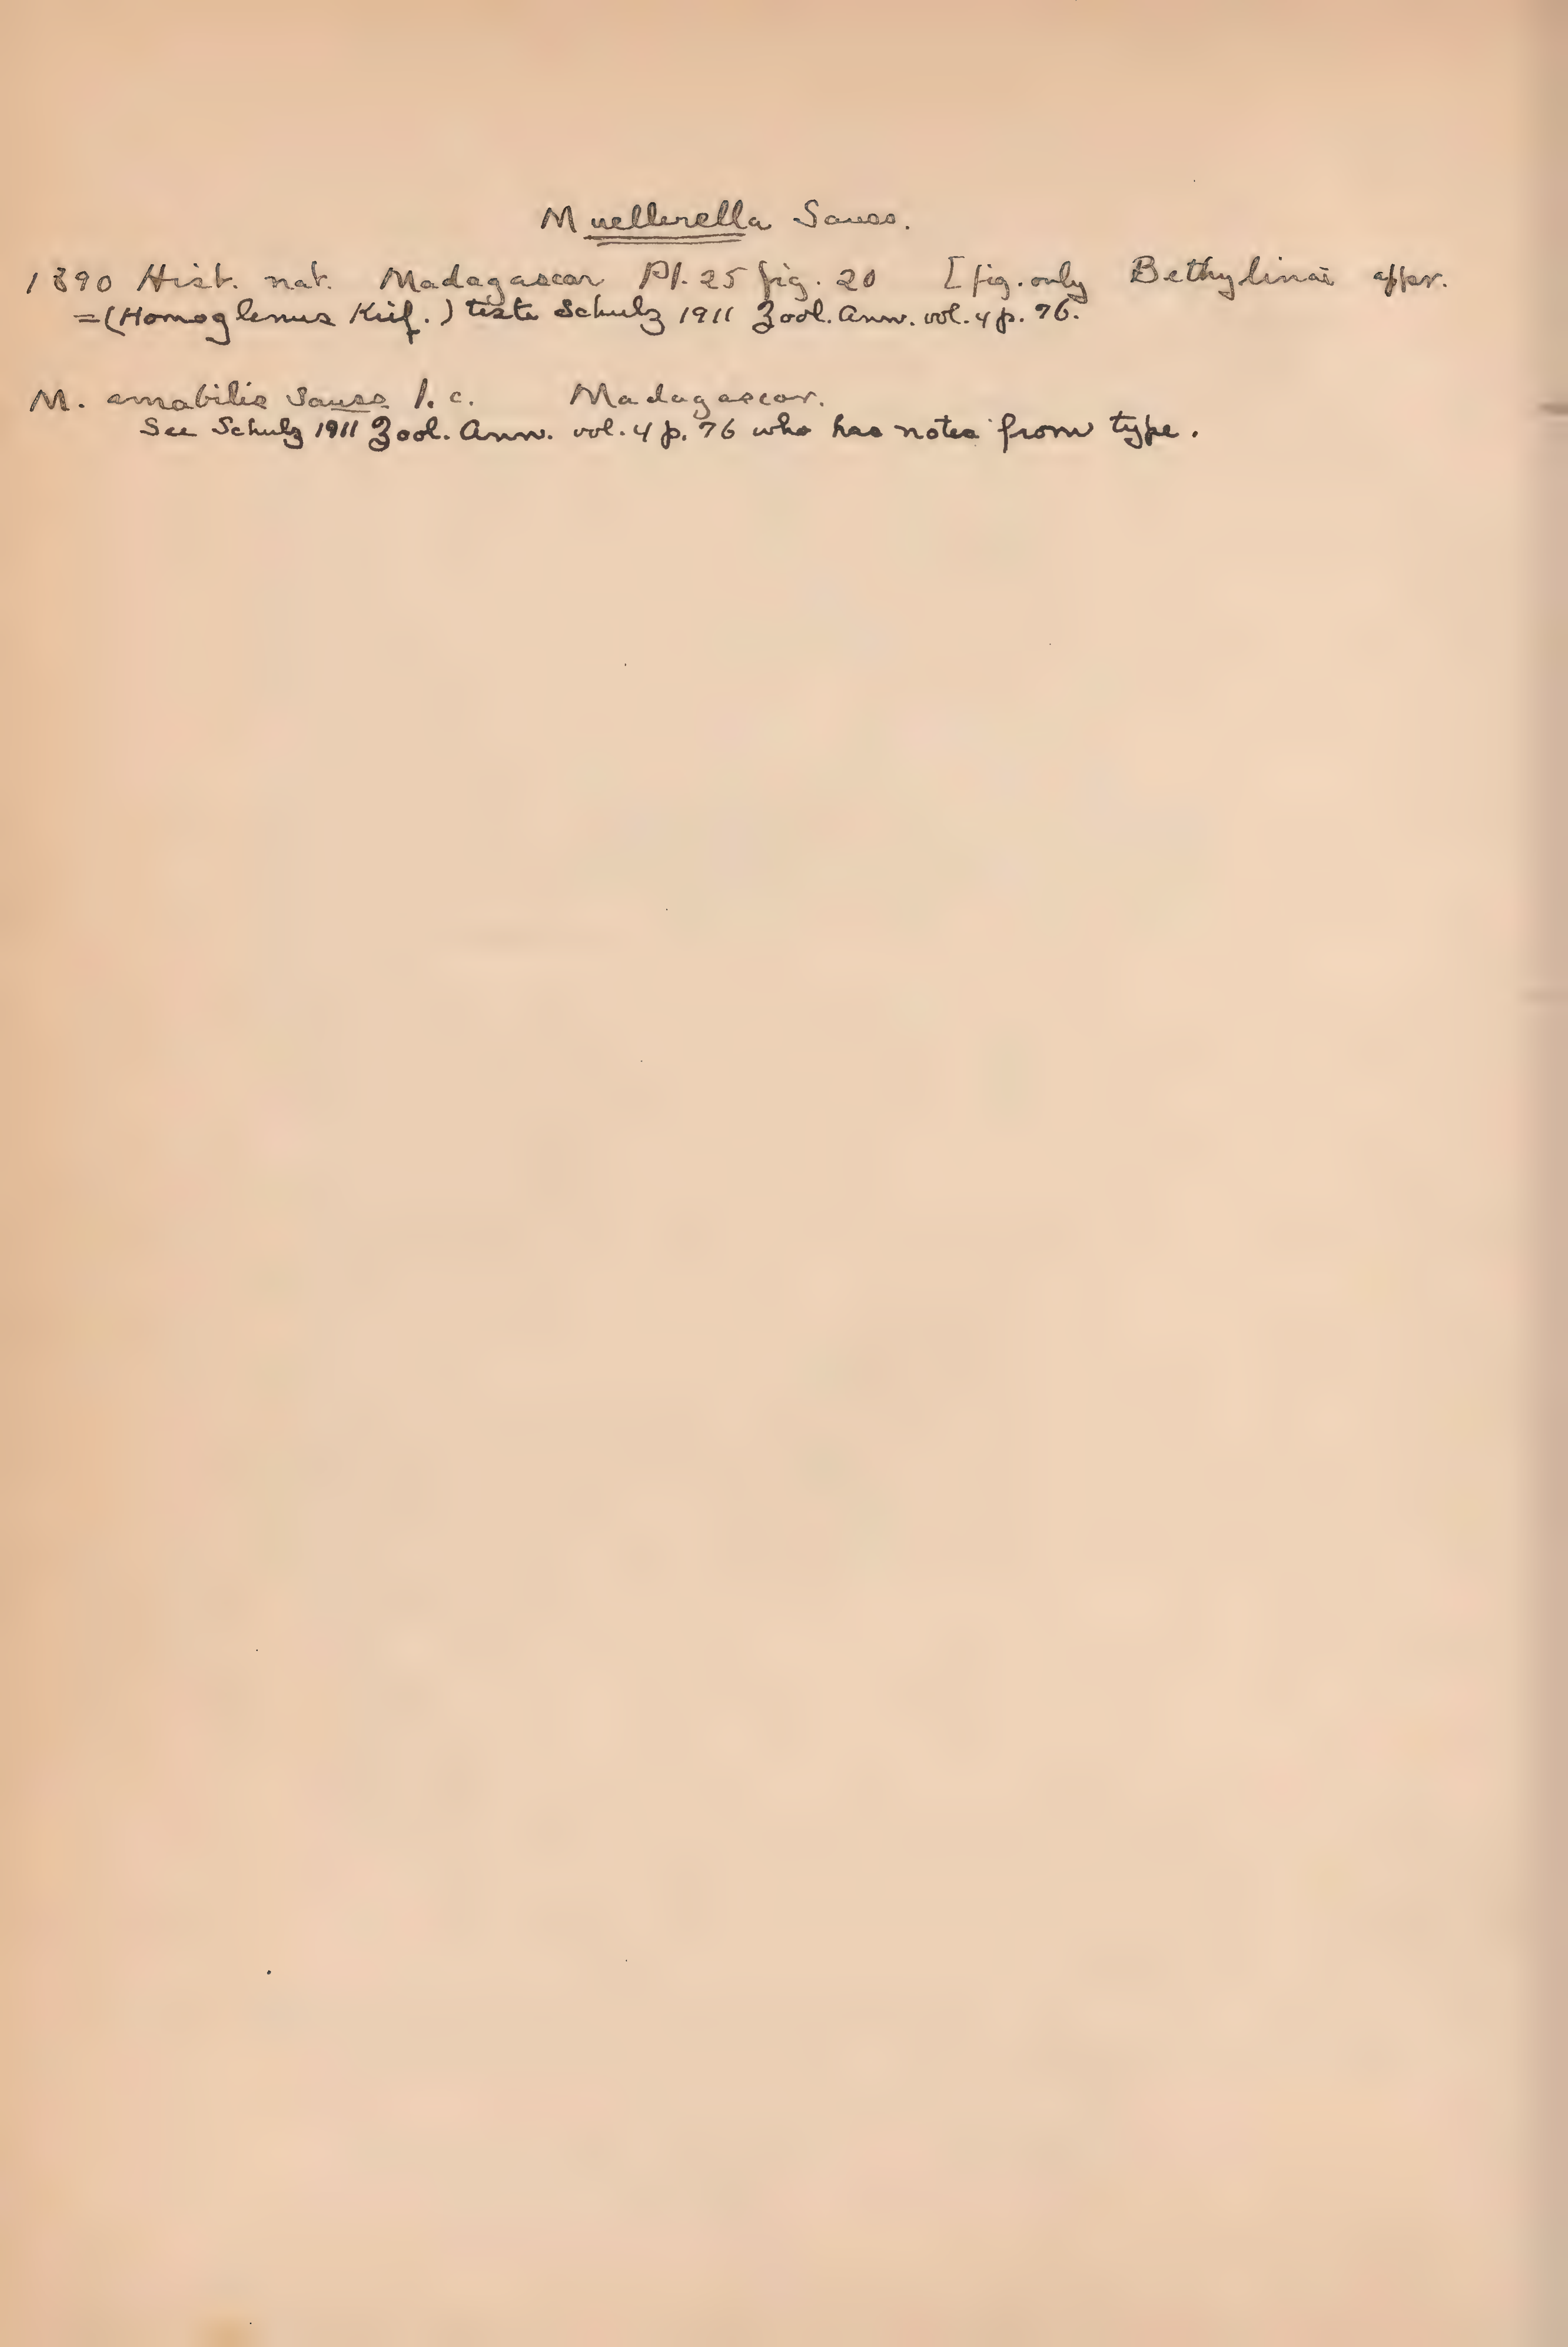 Muellerella Sauss.
1890 Hist. nat. Madagascar Pl. 25 fig. 20 [fig. only Bethylinae appr.
=(Homoglenus Kief.) teste Schulz 1911 Zool. Ann. vol. 4 p. 76.
M. amabilis Sauss l. c. Madagascar.
See Schulz 1911 Zool. Ann. vol. 4 p. 76 who has notes from type.